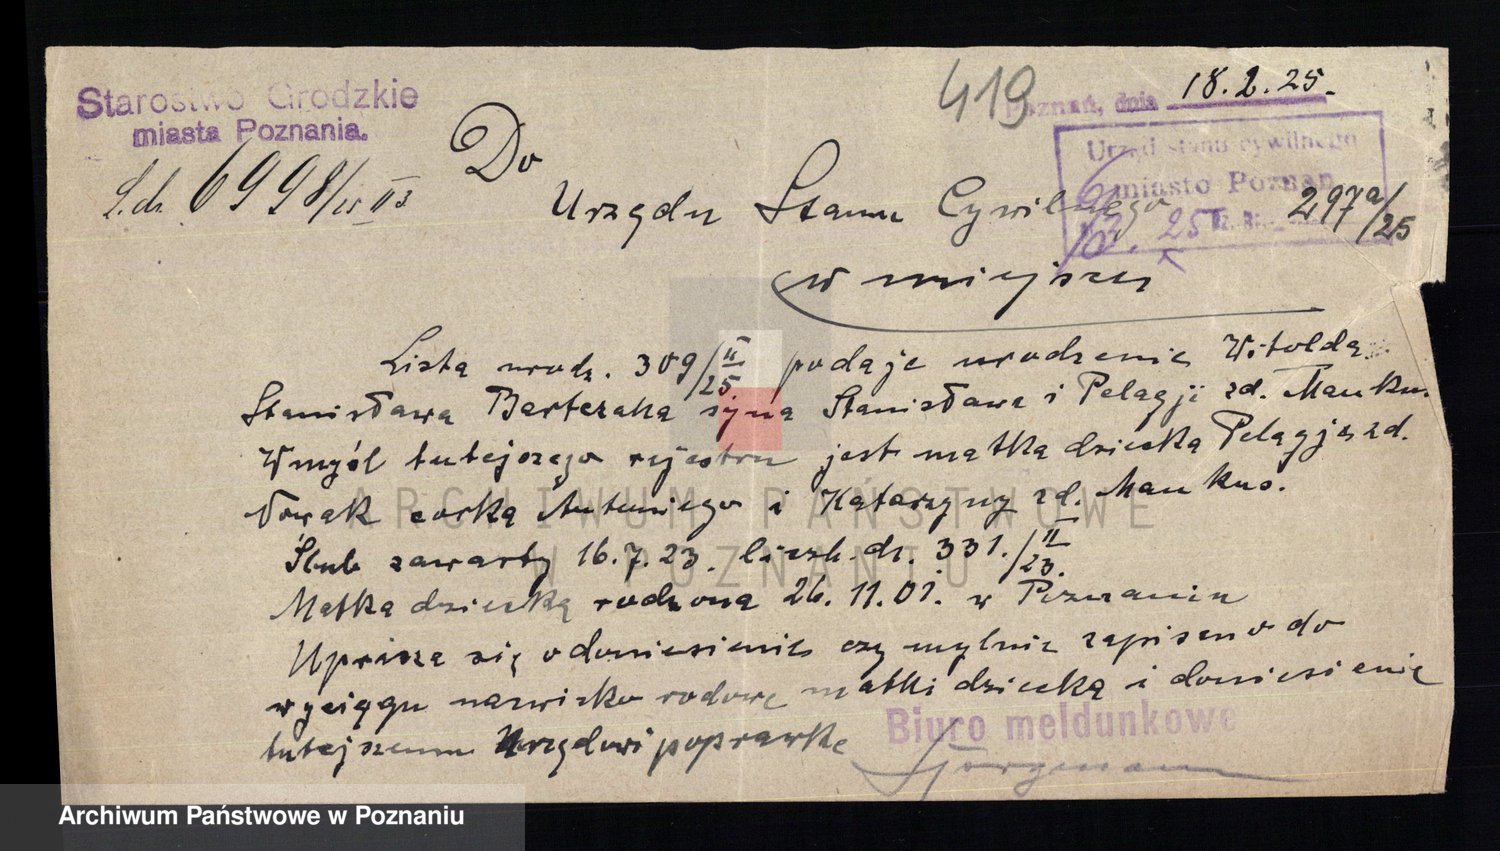 Starostwo Grodzkie
miasta Poznania.
419
Poznań, dnia 18.2.25.
L.dz. 6998/25 II 3
Urząd stanu cywilnego
miasto Poznań
297a/25
Do
Urzędu Stanu Cywilnego
w miejscu
Lista urodz. 309/II 25. podaje urodzenie Witolda
Stanisława Bartczaka syna Stanisława i Pelagji zd. Mankus.
Wmyśl tutejszego rejestru jest matka dziecka Pelagja zd.
Nowak córka Antoniego i Katarzyny zd. Mankus.
Ślub zawarty 16.7.23. liczb. dz. 331./II 23.
Matka dziecka rodzona 26.11.01. w Poznaniu
Uprasza się o doniesienie czy mylnie zapisano do
wyciągu nazwisko rodowe matki dziecka i doniesienie
tutejszemu Urzędowi poprawkę
Biuro meldunkowe
ARCHIWUM PAŃSTWOWE
W POZNANIU
Archiwum Państwowe w Poznaniu